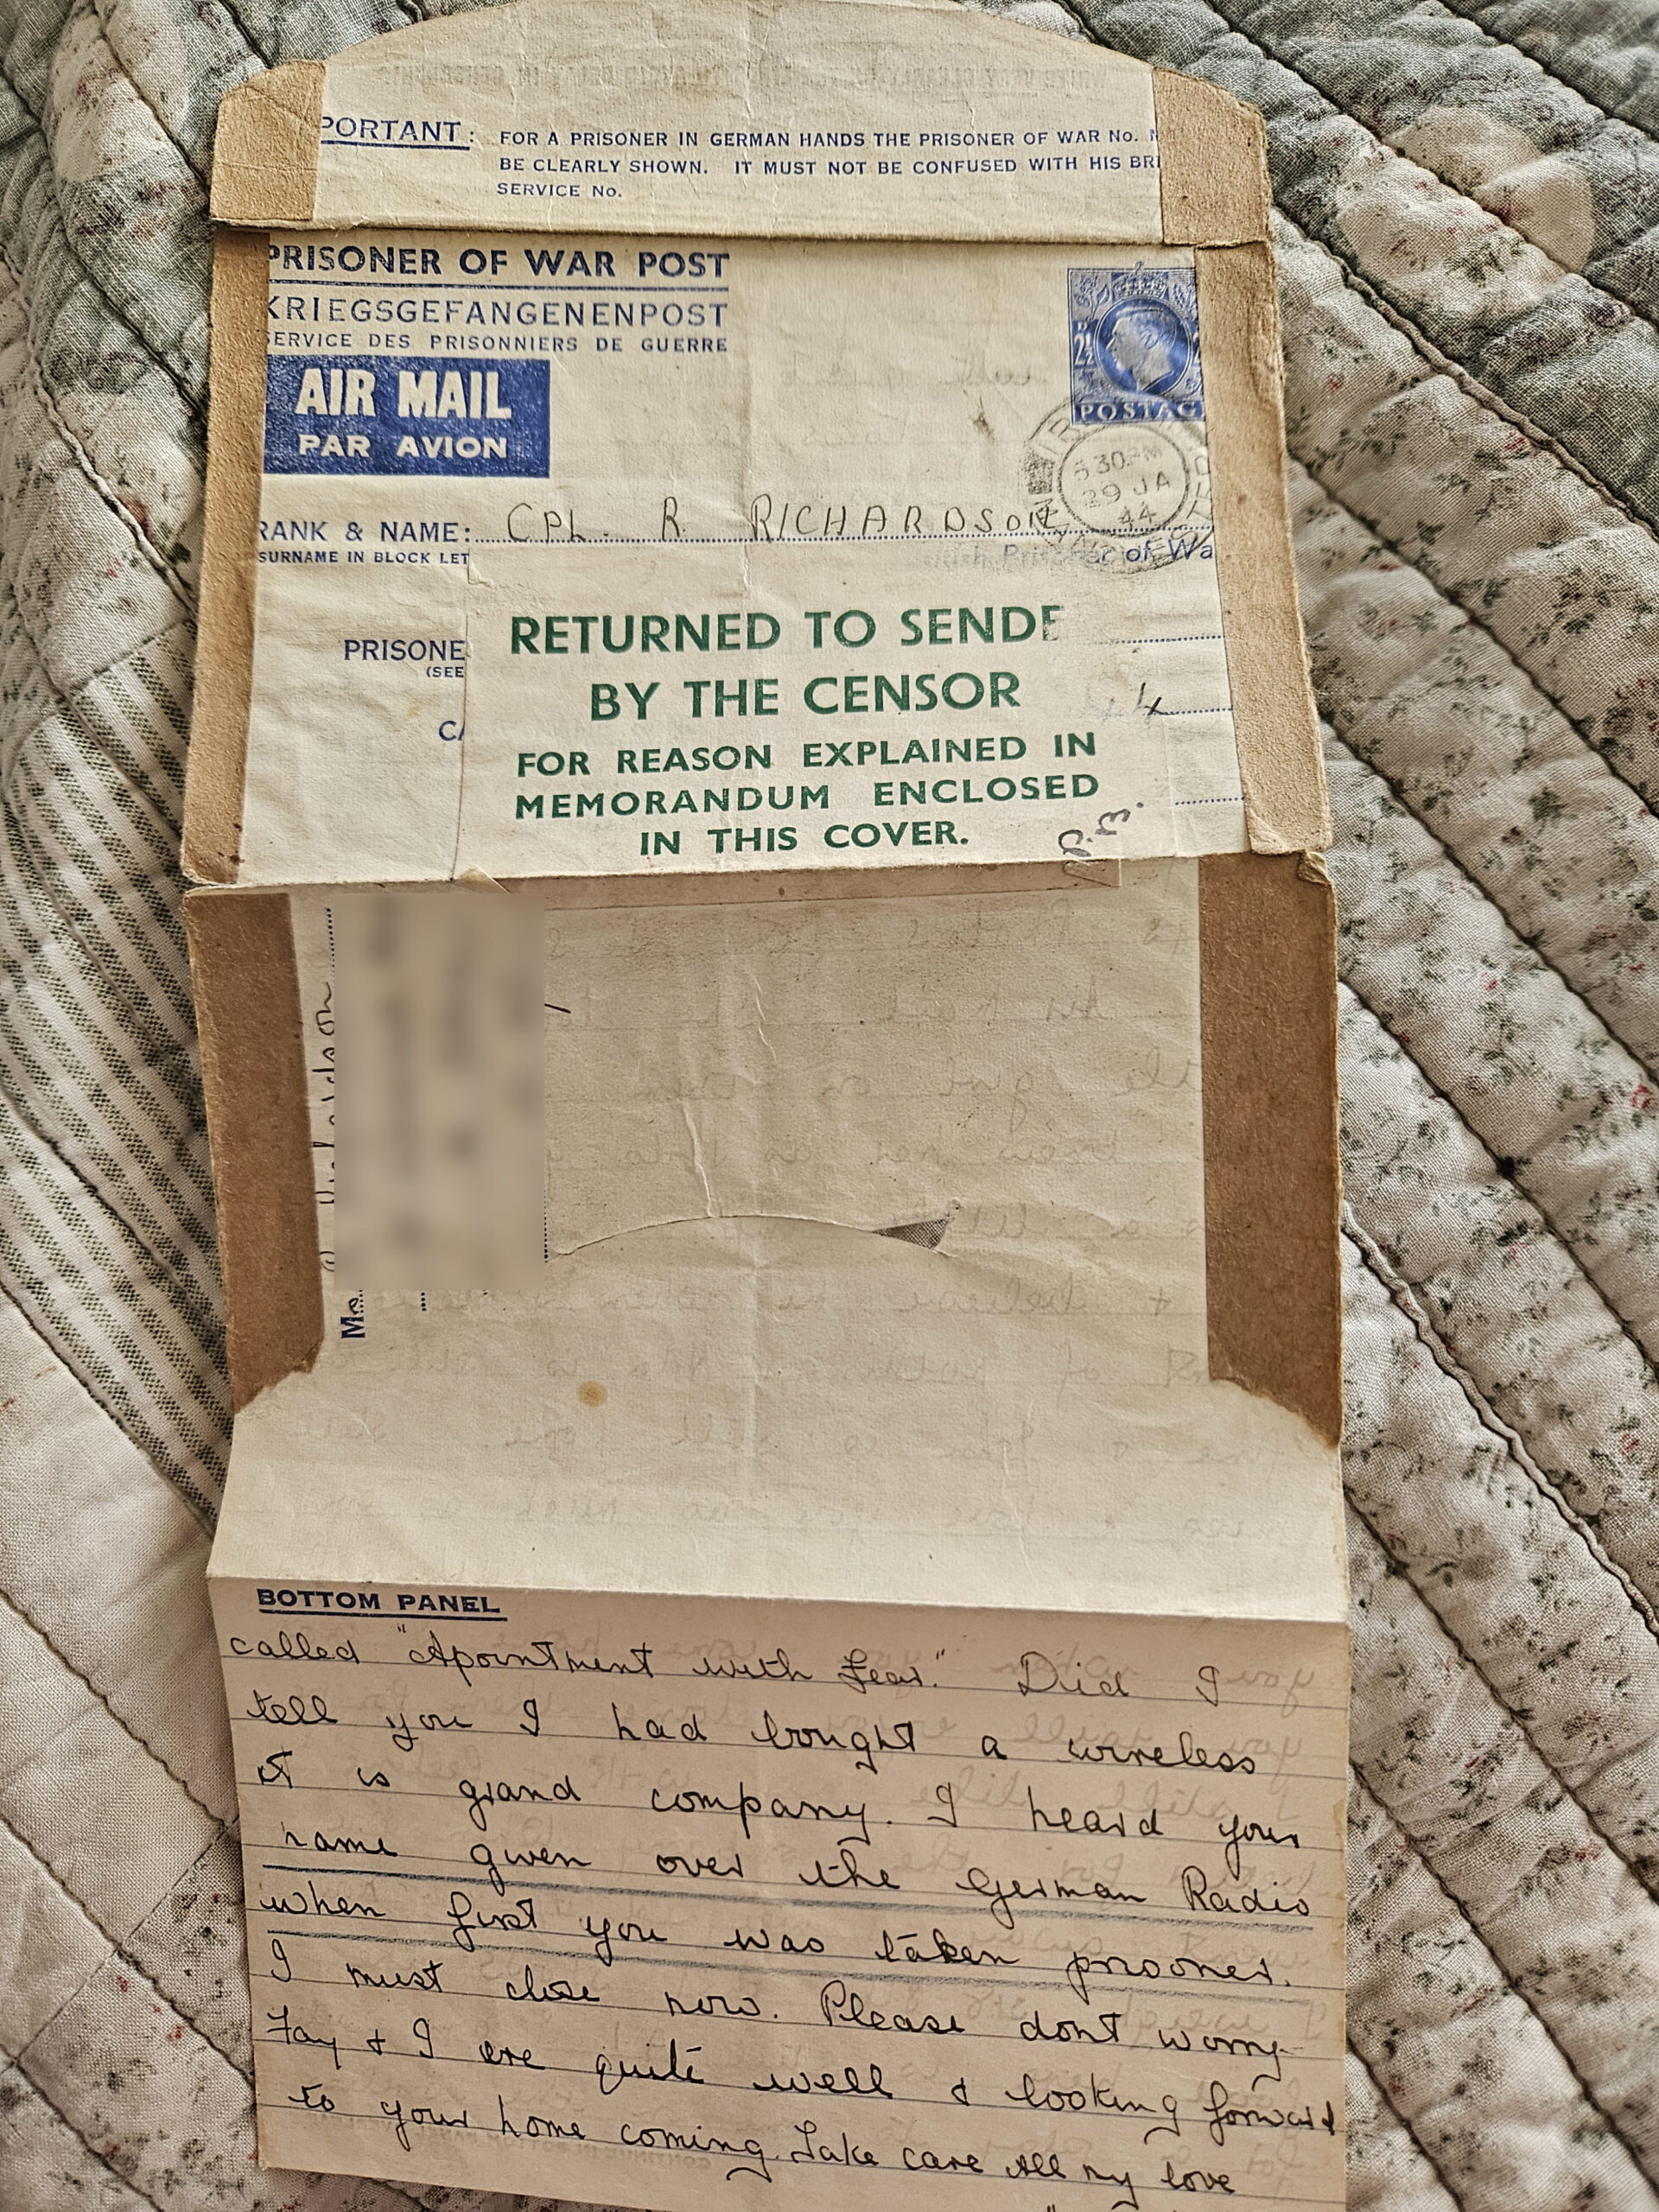 PORTANT: FOR A PRISONER IN GERMAN HANDS THE PRISONER OF WAR No. M
BE CLEARLY SHOWN. IT MUST NOT BE CONFUSED WITH HIS BRI
SERVICE No.
PRISONER OF WAR POST
KRIEGSGEFANGENENPOST
SERVICE DES PRISONNIERS DE GUERRE
AIR MAIL
PAR AVION
2½
POSTAG
5 30 PM
29 JA
44
RANK & NAME: CPL. R. RICHARDSON
SURNAME IN BLOCK LET
Prisoner of Wa
RETURNED TO SENDE
PRISONE
(SEE
BY THE CENSOR
CA
FOR REASON EXPLAINED IN
MEMORANDUM ENCLOSED
IN THIS COVER.
P.B.
Richardson
BOTTOM PANEL
called "Apointment with Fear." Did I
tell you I had bought a wireless
it is grand company. I heard your
name given over the German Radio
when first you was taken prisoner.
I must close now. Please dont worry
Fay & I are quite well & looking forward
to your home coming. Take care All my love